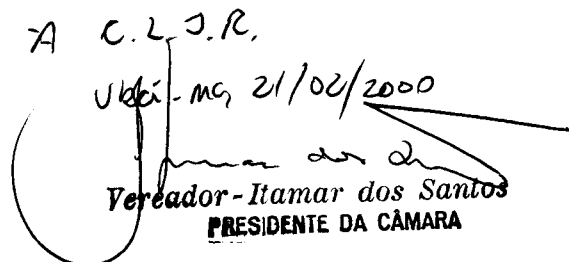 A C.L.J.R.
Ubá-MG, 21/02/2000
Vereador-Itamar dos Santos
PRESIDENTE DA CÂMARA